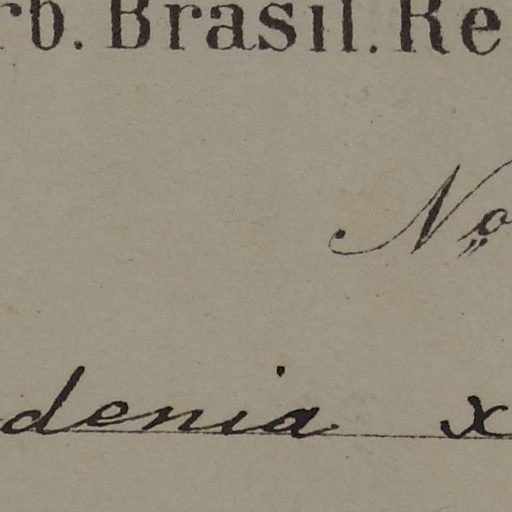 rb. Brasil. Re
No
denia x